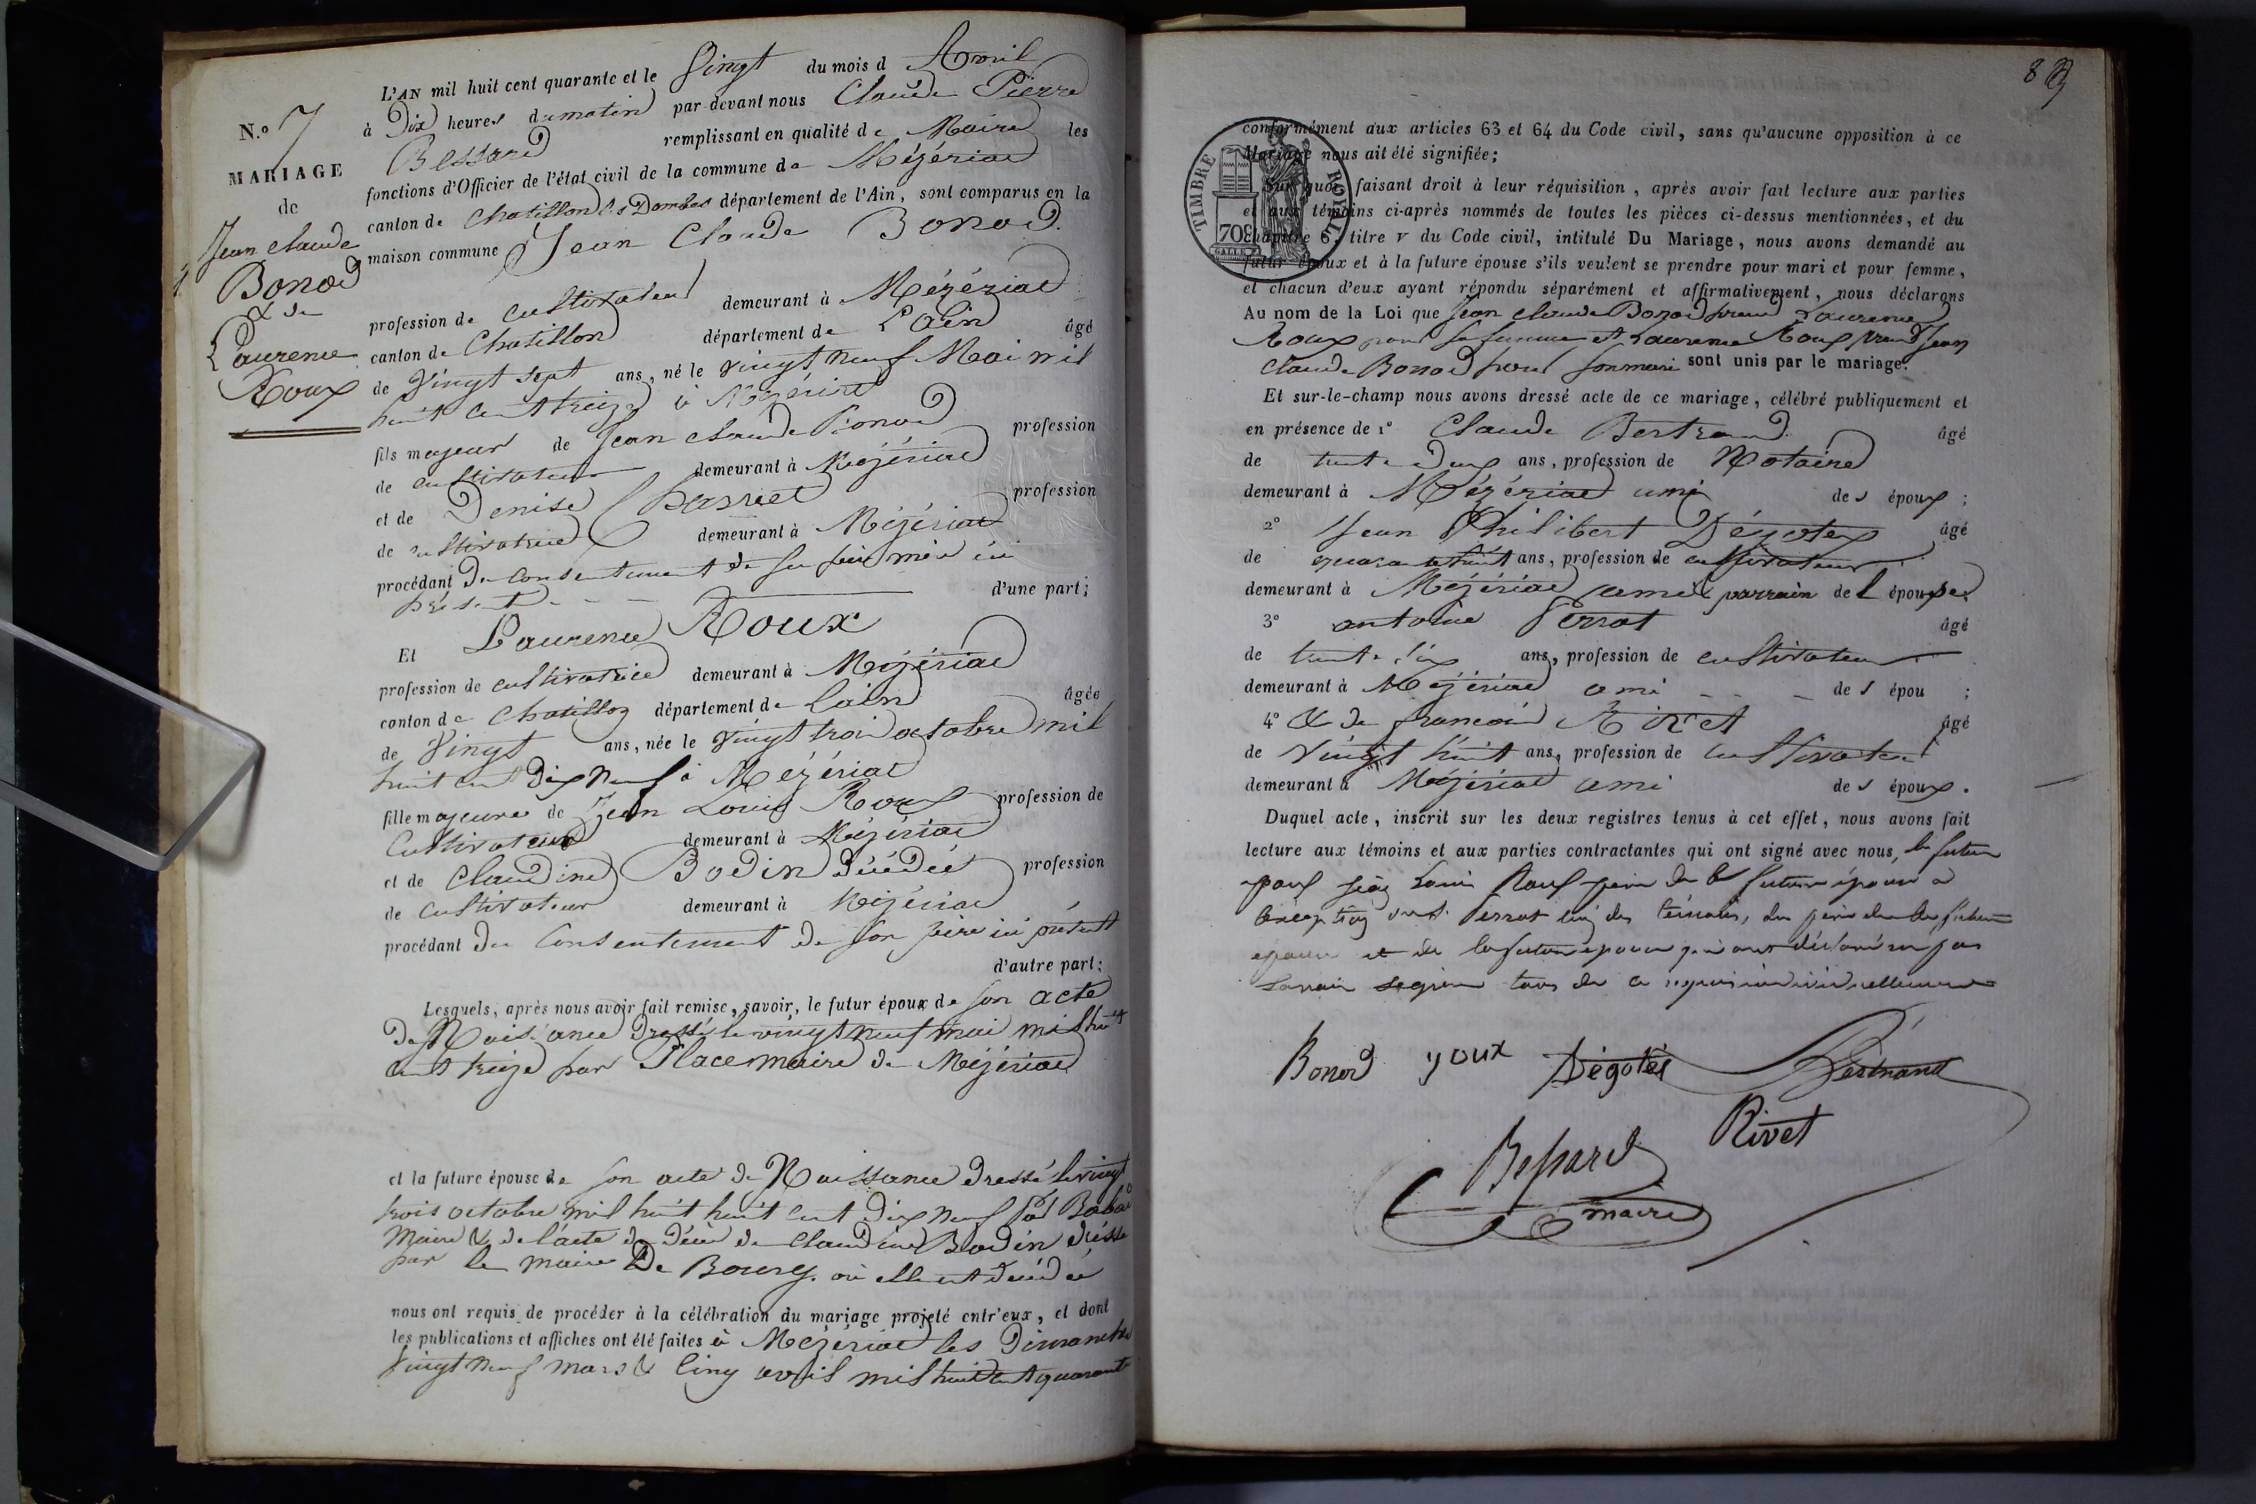 N.o 7
MARIAGE
de
Jean Claude
Bonod
& de
Laurence
Roux
L'AN mil huit cent quarante et le Vingt du mois d Avril
à Dix heures du matin par-devant nous Claude Pierre
Bessard remplissant en qualité de Maire les
fonctions d'Officier de l'état civil de la commune de Mézériat
canton de Chatillon les Dombes département de l'Ain, sont comparus en la
maison commune Jean Claude Bonod.
profession de cultivateur demeurant à Mézériat
canton de Chatillon département de L'Ain âgé
de Vingt sept ans, né le vingt neuf Mai mil
huit cent treize à Mézériat
fils majeur de Jean Claude Bonod profession
de cultivateur demeurant à Mézériat
et de Denise profession
de cultivatrice demeurant à Mézériat
procédant du consentement de ses père mère ici
présents d'une part;
Et Laurence Roux
profession de cultivatrice demeurant à Mézériat
canton de Chatillon département de Lain âgée
de Vingt ans, née le vingt trois octobre mil
huit cent Dix neuf à Mézériat
fille majeure de Jean Louis Roux profession de
Cultivateur demeurant à Mézériat
et de Claudine Bodin Décédée profession
de cultivateur demeurant à Mézériat
procédant du Consentement de son père ici présent
d'autre part;
Lesquels, après nous avoir fait remise, savoir, le futur époux de son acte
de Naissance Dressé le vingt neuf mai mil huit
cent treize par Place maire de Mézériat
et la future épouse de son acte de Naissance Dressé le vingt
trois octobre mil huit huit cent dix neuf par
Maire & de l'acte de décès de Claudine Bodin dressé
par le maire De Bourg où elle est décédée
nous ont requis de procéder à la célébration du mariage projeté entr'eux, et dont
les publications et affiches ont été faites à Mézériat les Dimanches
Vingt neuf mars & Cinq avril mil huit cent quarante
8
conformément aux articles 63 et 64 du Code civil, sans qu'aucune opposition à ce
Mariage nous ait été signifiée;
Sur quoi, faisant droit à leur réquisition, après avoir fait lecture aux parties
et aux témoins ci-après nommés de toutes les pièces ci-dessus mentionnées, et du
chapitre 6, titre v du Code civil, intitulé Du Mariage, nous avons demandé au
futur époux et à la future épouse s'ils veulent se prendre pour mari et pour femme,
et chacun d'eux ayant répondu séparément et affirmativement, nous déclarons
Au nom de la Loi que Jean Claude Bonod prend Laurence
Roux pour sa femme et Laurence Roux prend Jean
Claude Bonod pour son mari sont unis par le mariage.
TIMBRE ROYAL
70c
Et sur-le-champ nous avons dressé acte de ce mariage, célébré publiquement et
en présence de 1° Claude Bertrand âgé
de trente deux ans, profession de Notaire
demeurant à Mézériat ami des époux;
2° Jean Philibert Dégotex âgé
de quarante huit ans, profession de cultivateur
demeurant à Mézériat ami & parrain de l épouse;
3° antoine Perrat âgé
de trente six ans, profession de cultivateur
demeurant à Mézériat ami des épou ;
4° & de françois Rivet âgé
de Vingt huit ans, profession de cultivateur
demeurant à Mézériat ami des époux.
Duquel acte, inscrit sur les deux registres tenus à cet effet, nous avons fait
lecture aux témoins et aux parties contractantes qui ont signé avec nous, le futur
époux Louis Roux père de la future épouse a
Perrat un des témoins, du père du futur
époux et de la future épouse qui ont déclaré ne pas
savoir signer tous de ce requis individuellement
Bonod youx Dégotex Bertrand
Bessard Rivet
maire